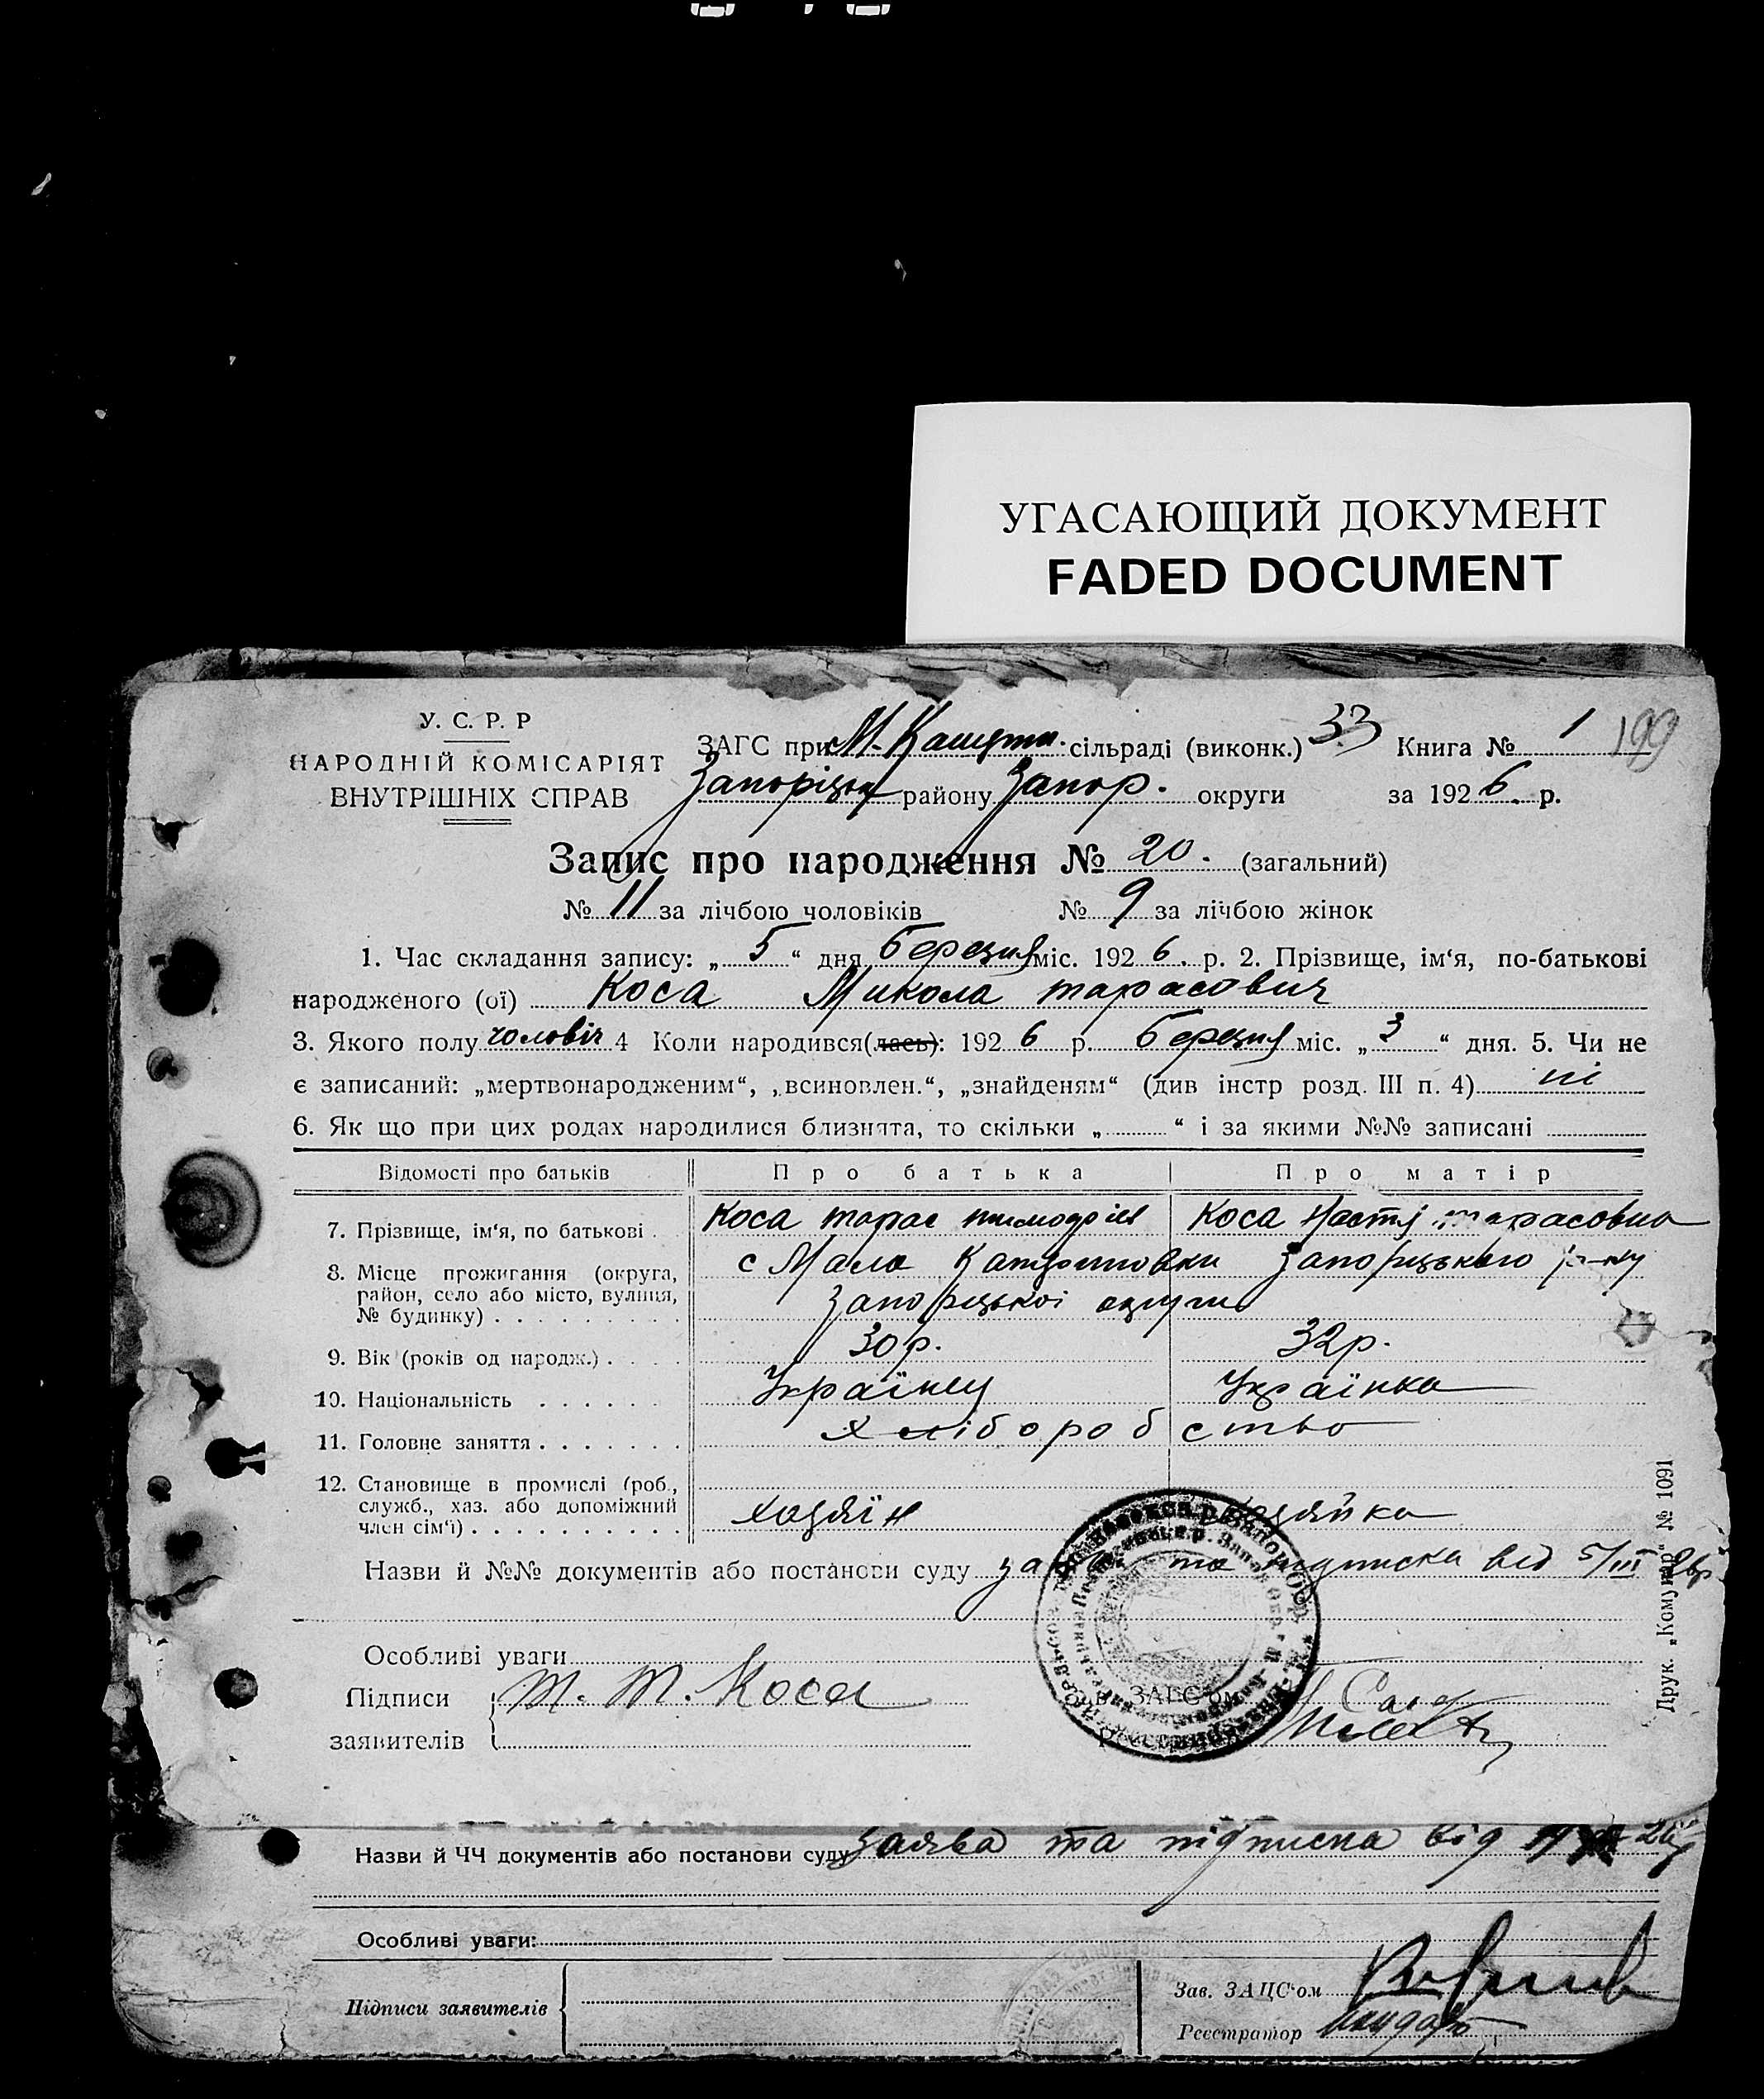 УГАСАЮЩИЙ ДОКУМЕНТ
FADED DOCUMENT
У. С. Р. Р
НАРОДНІЙ КОМІСАРІЯТ
ВНУТРІШНІХ СПРАВ
ЗАГС при М. сільраді (виконк.) 33 Книга № 1 199
Запоріськ району Запор. округи за 1926. р.
Запис про народження № 20. (загальний)
№ 11 за лічбою чоловіків № 9 за лічбою жінок
1. Час складання запису: „ 5 “ дня березня міс. 1926. р. 2. Прізвище, ім‘я, по-батькові
народженого (ої) Коса Микола тарасович
3. Якого полу чоловіч 4 Коли народився(лась): 1926 р. березня міс. „ 3 “ дня. 5. Чи не
є записаний: „мертвонародженим“, „всиновлен.“, „знайденям“ (див інстр розд. III п. 4) ні
6. Як що при цих родах народилися близнята, то скільки „ “ і за якими №№ записані
Відомості про батьків Про батька Про матір
7. Прізвище, ім‘я, по батькові Коса тарас Коса Настя тарасовна
8. Місце прожигання (округа, район, село або місто, вулиця, № будинку) с Мало Запорізького р-ну
Запорізької округи
9. Вік (років од народж.) 30р. 32р.
10. Національність Українец Українка
11. Головне заняття хліборобство
12. Становище в промислі (роб., служб., хаз. або допоміжний член сім‘ї) хозяїн хозяйка
Назви й №№ документів або постанови суду та підписка від 5/III 26р.
Особливі уваги
Підписи заявителів Т. Т. Коса
ЗАГС‘ом
Друк. „Комунар“ № 1091
Назви й ЧЧ документів або постанови суду Заява та підписка від
Особливі уваги:
Підписи заявителів
Зав. ЗАЦС‘ом
Реєстратор